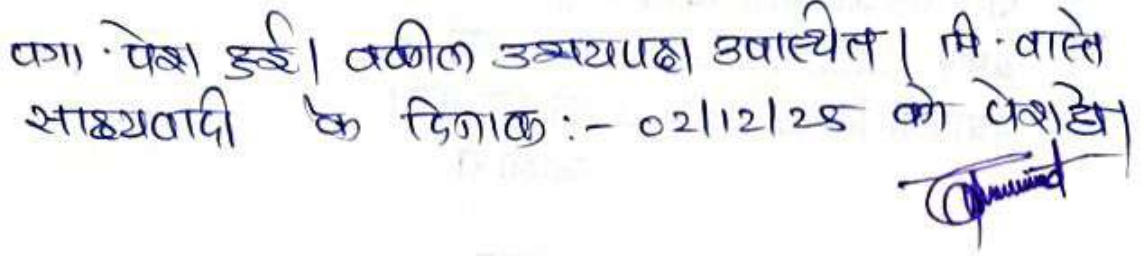 पत्रा. पेश हुई। वकील उभयपक्ष उपास्थित। मि. वास्ते
साक्ष्यवादी के दिनाक :- 02/12/25 को पेश हो।